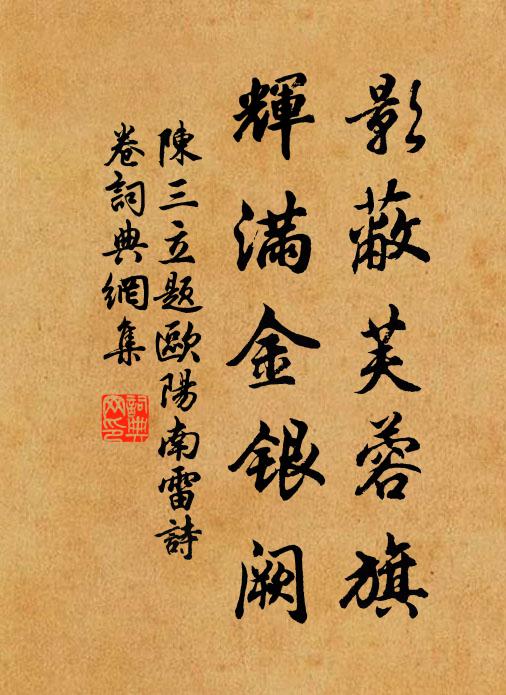 影蔽芙蓉旗
輝滿金銀闕
陳三立題歐陽南雷詩
卷詞典網集
詞典網印